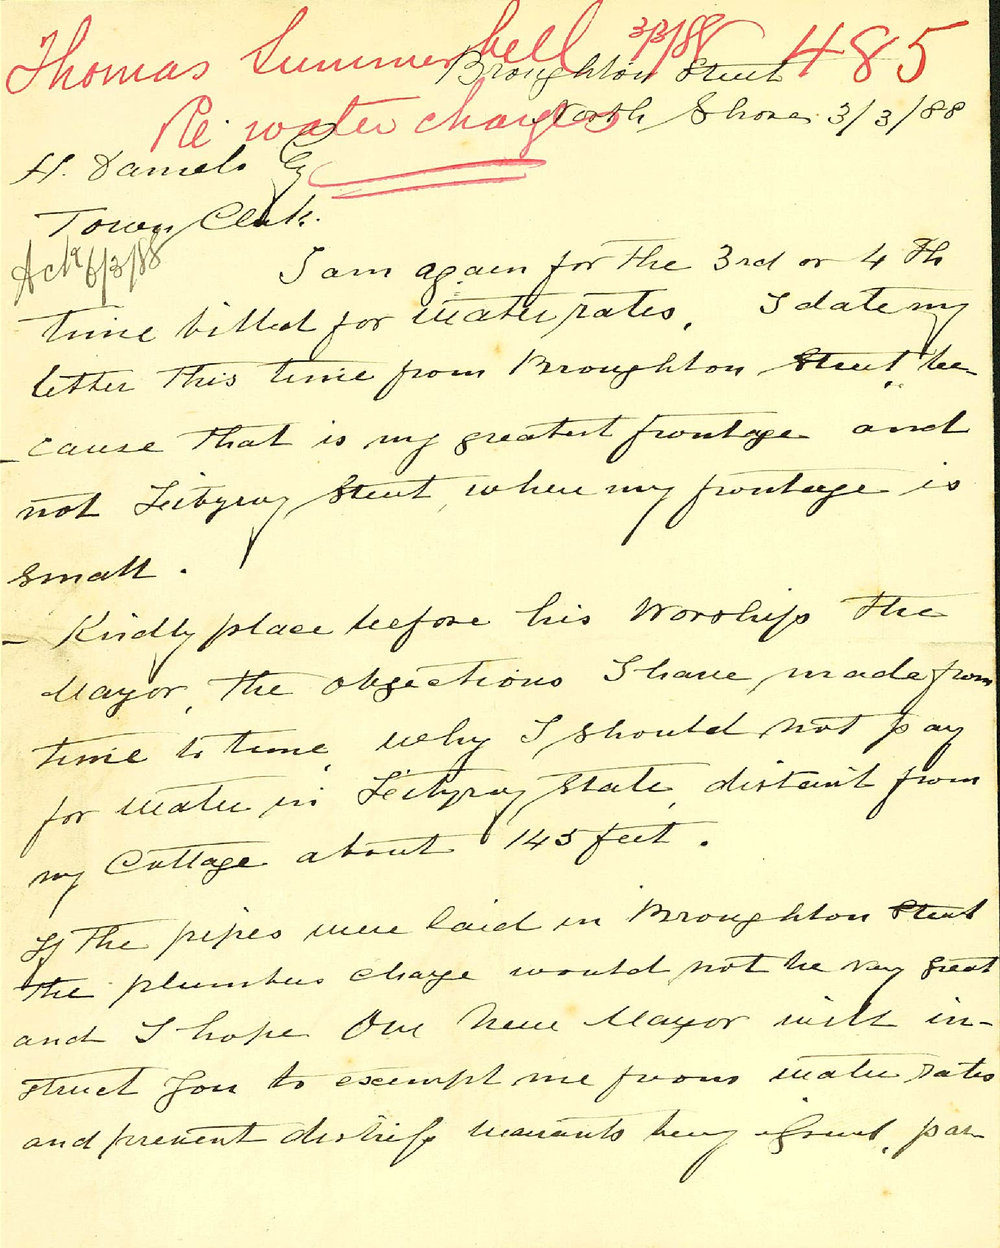 Thomas Summerbell 3/3/88 485
Re water charges
Broughton Street
North Shore 3/3/88
H. Daniels Esq
Town Clerk.
Ack 6/3/88
I am again for the 3rd or 4th
time billed for water rates. I date my
letter this time from Broughton Street be-
cause that is my greatest frontage and
not Fitzroy Street, where my frontage is
small.
Kindly place before his Worship the
Mayor, the objections I have made from
time to time, why I should not pay
for water in Fitzroy State, distant from
my Cottage about 145 feet.
If the pipes were laid in Broughton Street
the plumbers charge would not be very great
and I hope Our New Mayor will in-
struct you to exempt me from water rates
and prevent warrants being par-